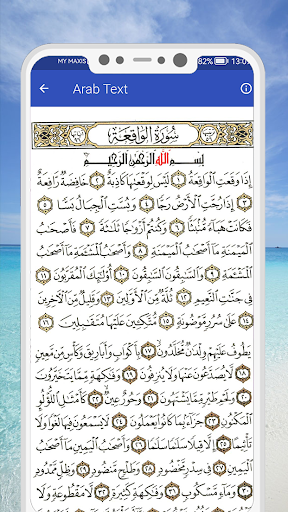 MY MAXIS
82% 13:09
Arab Text
سُورَةُ الْوَاقِعَةِ
بِسْمِ اللهِ الرَّحْمٰنِ الرَّحِيْمِ
إِذَا وَقَعَتِ الْوَاقِعَةُ ۝١ لَيْسَ لِوَقْعَتِهَا كَاذِبَةٌ ۝٢ خَافِضَةٌ رَافِعَةٌ
۝٣ إِذَا رُجَّتِ الْأَرْضُ رَجًّا ۝٤ وَبُسَّتِ الْجِبَالُ بَسًّا ۝٥
فَكَانَتْ هَبَاءً مُنْبَثًّا ۝٦ وَكُنْتُمْ أَزْوَاجًا ثَلَاثَةً ۝٧ فَأَصْحَابُ
الْمَيْمَنَةِ مَا أَصْحَابُ الْمَيْمَنَةِ ۝٨ وَأَصْحَابُ الْمَشْئَمَةِ مَا أَصْحَابُ
الْمَشْئَمَةِ ۝٩ وَالسَّابِقُونَ السَّابِقُونَ ۝١٠ أُولَٰئِكَ الْمُقَرَّبُونَ ۝١١
فِي جَنَّاتِ النَّعِيمِ ۝١٢ ثُلَّةٌ مِنَ الْأَوَّلِينَ ۝١٣ وَقَلِيلٌ مِنَ الْآخِرِينَ
۝١٤ عَلَىٰ سُرُرٍ مَوْضُونَةٍ ۝١٥ مُتَّكِئِينَ عَلَيْهَا مُتَقَابِلِينَ ۝١٦
يَطُوفُ عَلَيْهِمْ وِلْدَانٌ مُخَلَّدُونَ ۝١٧ بِأَكْوَابٍ وَأَبَارِيقَ وَكَأْسٍ مِنْ مَعِينٍ
۝١٨ لَا يُصَدَّعُونَ عَنْهَا وَلَا يُنْزِفُونَ ۝١٩ وَفَاكِهَةٍ مِمَّا يَتَخَيَّرُونَ
۝٢٠ وَلَحْمِ طَيْرٍ مِمَّا يَشْتَهُونَ ۝٢١ وَحُورٌ عِينٌ ۝٢٢ كَأَمْثَالِ اللُّؤْلُؤِ
الْمَكْنُونِ ۝٢٣ جَزَاءً بِمَا كَانُوا يَعْمَلُونَ ۝٢٤ لَا يَسْمَعُونَ فِيهَا لَغْوًا وَلَا
تَأْثِيمًا ۝٢٥ إِلَّا قِيلًا سَلَامًا سَلَامًا ۝٢٦ وَأَصْحَابُ الْيَمِينِ مَا أَصْحَابُ
الْيَمِينِ ۝٢٧ فِي سِدْرٍ مَخْضُودٍ ۝٢٨ وَطَلْحٍ مَنْضُودٍ ۝٢٩ وَظِلٍّ مَمْدُودٍ
۝٣٠ وَمَاءٍ مَسْكُوبٍ ۝٣١ وَفَاكِهَةٍ كَثِيرَةٍ ۝٣٢ لَا مَقْطُوعَةٍ وَلَا